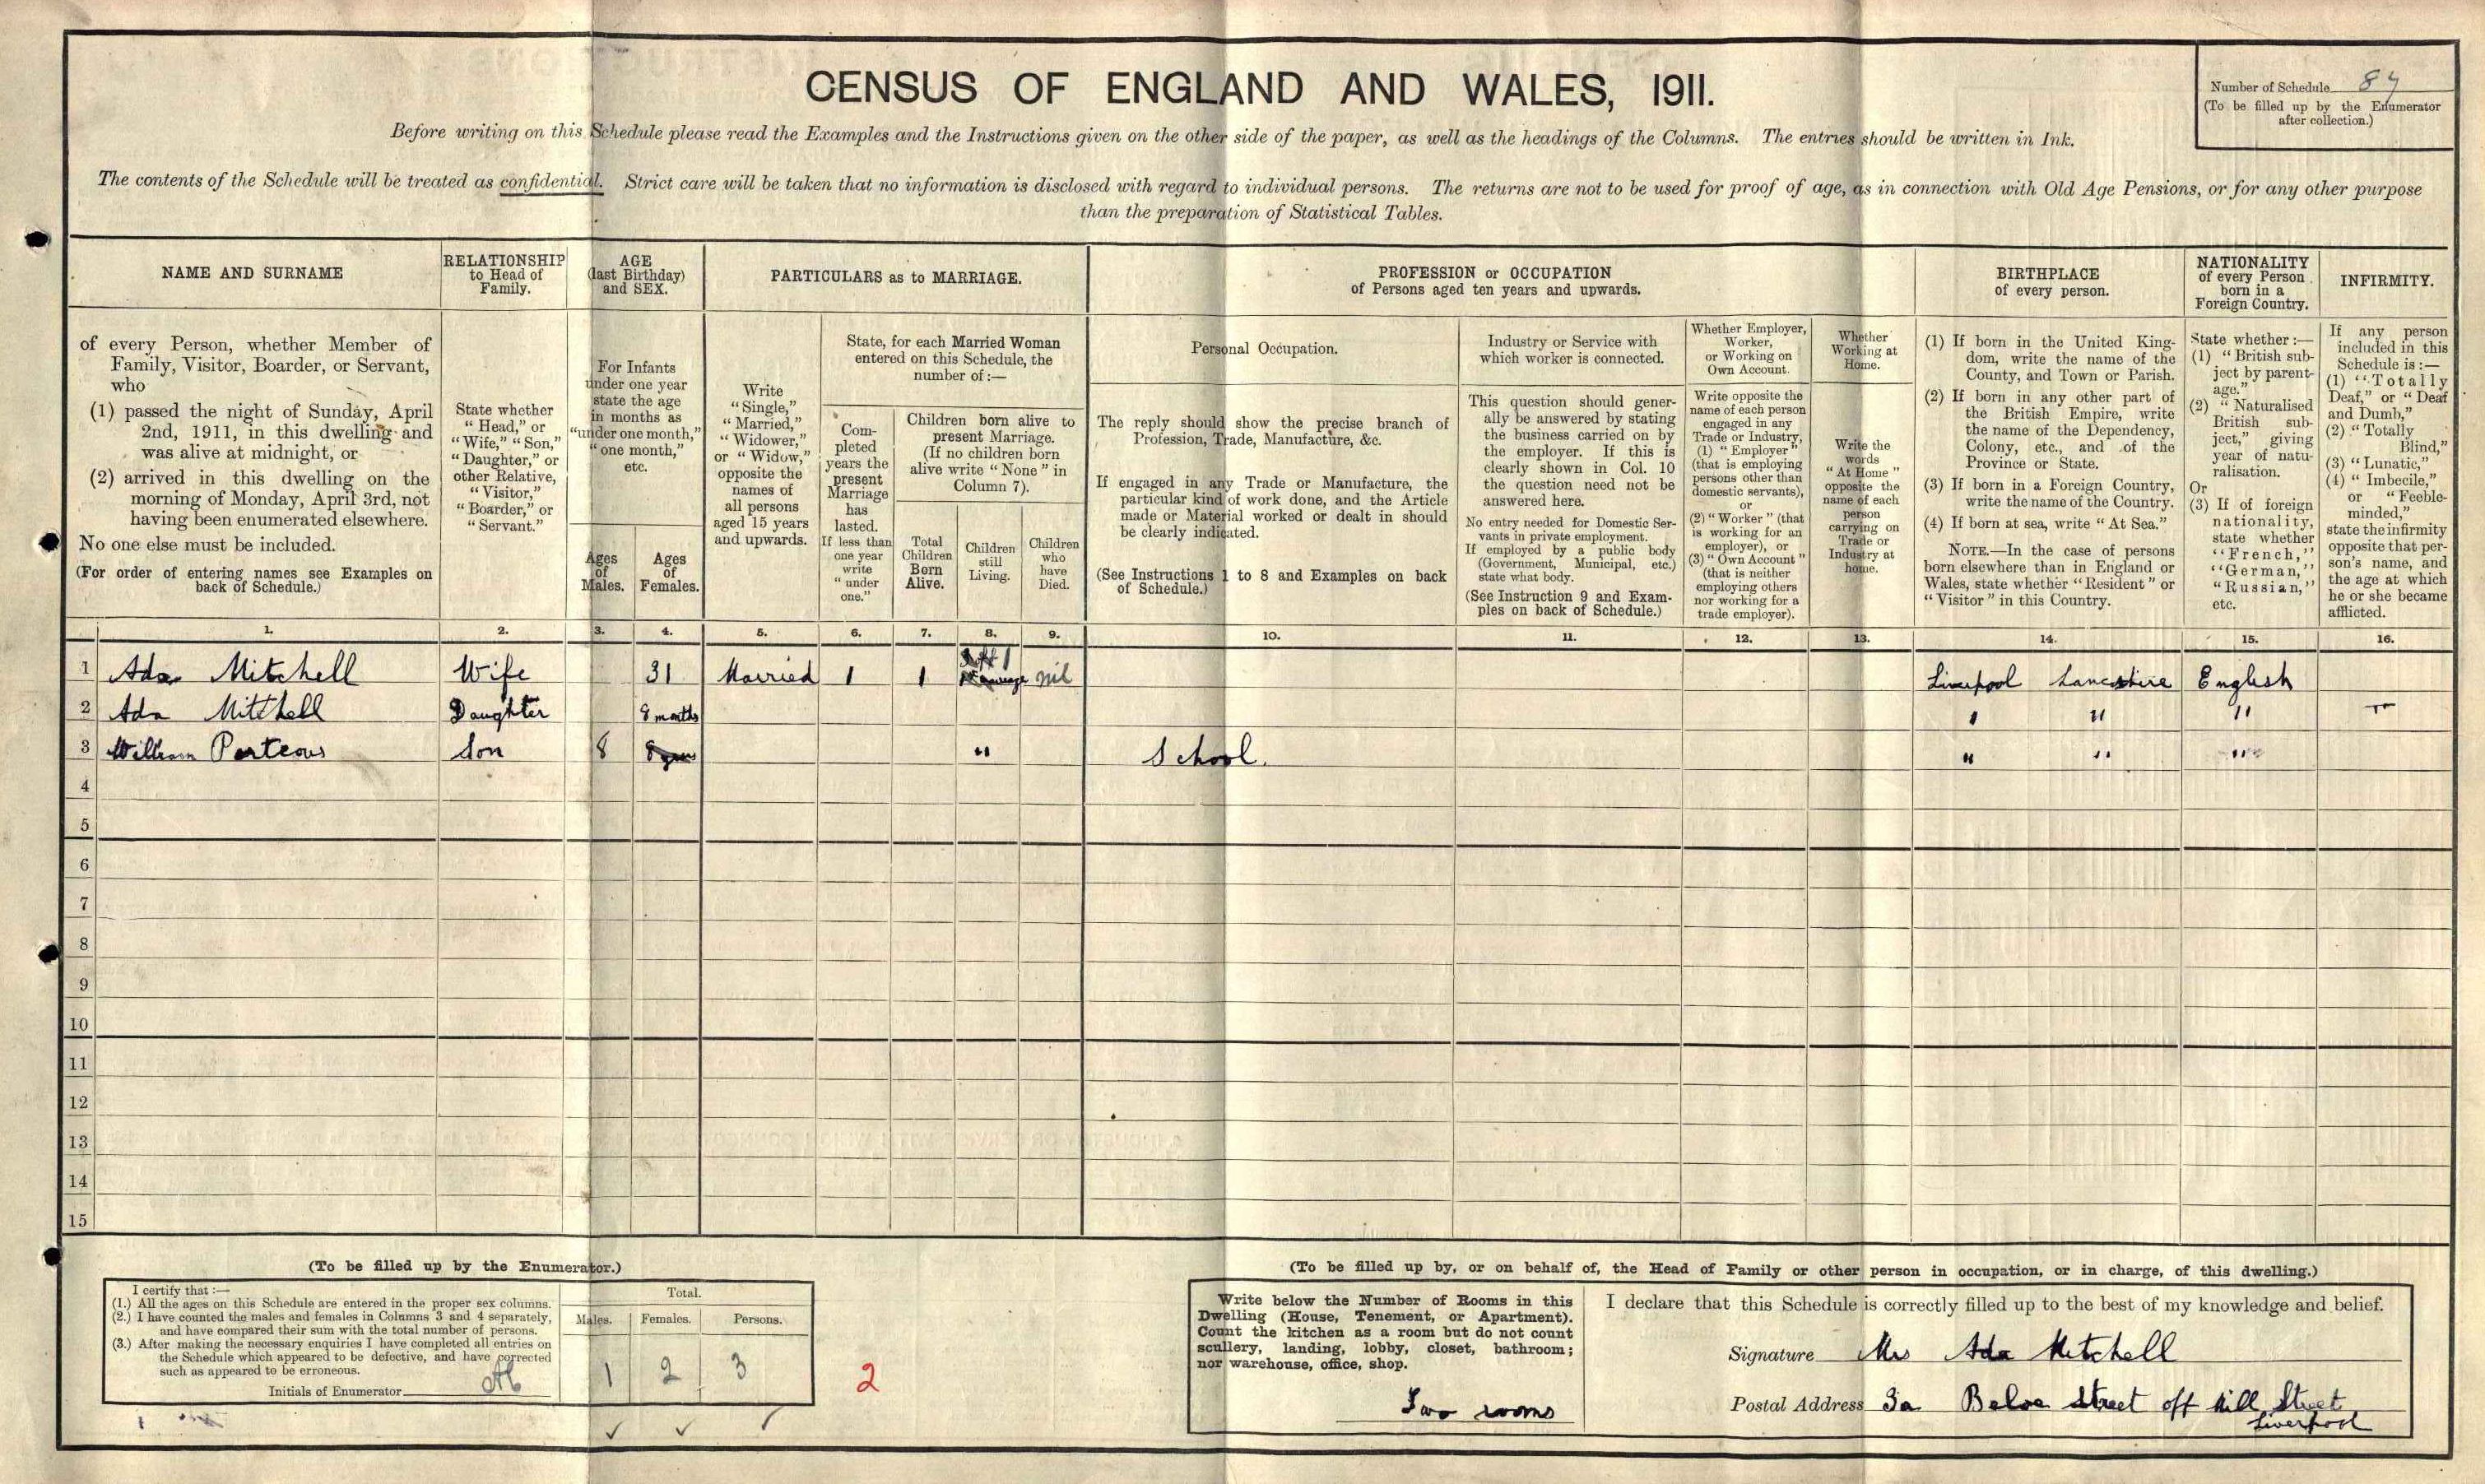 CENSUS OF ENGLAND AND WALES, 1911.
Number of Schedule 87
(To be filled up by the Enumerator
after collection.)
Before writing on this Schedule please read the Examples and the Instructions given on the other side of the paper, as well as the headings of the Columns. The entries should be written in Ink.
The contents of the Schedule will be treated as confidential. Strict care will be taken that no information is disclosed with regard to individual persons. The returns are not to be used for proof of age, as in connection with Old Age Pensions, or for any other purpose
than the preparation of Statistical Tables.
NAME AND SURNAME
of every Person, whether Member of
Family, Visitor, Boarder, or Servant,
who
(1) passed the night of Sunday, April
2nd, 1911, in this dwelling and
was alive at midnight, or
(2) arrived in this dwelling on the
morning of Monday, April 3rd, not
having been enumerated elsewhere.
No one else must be included.
(For order of entering names see Examples on
back of Schedule.)
RELATIONSHIP
to Head of
Family.
State whether
"Head," or
"Wife," "Son,"
"Daughter," or
other Relative,
"Visitor,"
"Boarder," or
"Servant."
AGE
(last Birthday)
and SEX.
For Infants
under one year
state the age
in months as
"under one month,"
"one month,"
etc.
Ages
of
Males.
Ages
of
Females.
PARTICULARS as to MARRIAGE.
Write
"Single,"
"Married,"
"Widower,"
or "Widow,"
opposite the
names of
all persons
aged 15 years
and upwards.
State, for each Married Woman
entered on this Schedule, the
number of:—
Com-
pleted
years the
present
Marriage
has
lasted.
If less than
one year
write
"under
one."
Children born alive to
present Marriage.
(If no children born
alive write "None" in
Column 7).
Total
Children
Born
Alive.
Children
still
Living.
Children
who
have
Died.
PROFESSION or OCCUPATION
of Persons aged ten years and upwards.
Personal Occupation.
The reply should show the precise branch of
Profession, Trade, Manufacture, &c.
If engaged in any Trade or Manufacture, the
particular kind of work done, and the Article
made or Material worked or dealt in should
be clearly indicated.
(See Instructions 1 to 8 and Examples on back
of Schedule.)
Industry or Service with
which worker is connected.
This question should gener-
ally be answered by stating
the business carried on by
the employer. If this is
clearly shown in Col. 10
the question need not be
answered here.
No entry needed for Domestic Ser-
vants in private employment.
If employed by a public body
(Government, Municipal, etc.)
state what body.
(See Instruction 9 and Exam-
ples on back of Schedule.)
Whether Employer,
Worker,
or Working on
Own Account.
Write opposite the
name of each person
engaged in any
Trade or Industry,
(1) "Employer"
(that is employing
persons other than
domestic servants),
or
(2) "Worker" (that
is working for an
employer), or
(3) "Own Account"
(that is neither
employing others
nor working for a
trade employer).
Whether
Working at
Home.
Write the
words
"At Home"
opposite the
name of each
person
carrying on
Trade or
Industry at
home.
BIRTHPLACE
of every person.
(1) If born in the United King-
dom, write the name of the
County, and Town or Parish.
(2) If born in any other part of
the British Empire, write
the name of the Dependency,
Colony, etc., and of the
Province or State.
(3) If born in a Foreign Country,
write the name of the Country.
(4) If born at sea, write "At Sea."
NOTE.—In the case of persons
born elsewhere than in England or
Wales, state whether "Resident" or
"Visitor" in this Country.
NATIONALITY
of every Person
born in a
Foreign Country.
State whether:—
(1) "British sub-
ject by parent-
age."
(2) "Naturalised
British sub-
ject," giving
year of natu-
ralisation.
Or
(3) If of foreign
nationality,
state whether
"French,"
"German,"
"Russian,"
etc.
INFIRMITY.
If any person
included in this
Schedule is:—
(1) "Totally
Deaf," or "Deaf
and Dumb,"
(2) "Totally
Blind,"
(3) "Lunatic,"
(4) "Imbecile,"
or "Feeble-
minded,"
state the infirmity
opposite that per-
son's name, and
the age at which
he or she became
afflicted.
1. 2. 3. 4. 5. 6. 7. 8. 9. 10. 11. 12. 13. 14. 15. 16.
1 Ada Mitchell Wife 31 Married 1 1 1 nil Liverpool Lancashire English
2 Ada Mitchell Daughter 8 months " " "
3 William Porteous Son 8 " School. " " "
4
5
6
7
8
9
10
11
12
13
14
15
(To be filled up by the Enumerator.)
I certify that:—
(1.) All the ages on this Schedule are entered in the proper sex columns.
(2.) I have counted the males and females in Columns 3 and 4 separately,
and have compared their sum with the total number of persons.
(3.) After making the necessary enquiries I have completed all entries on
the Schedule which appeared to be defective, and have corrected
such as appeared to be erroneous.
Initials of Enumerator
Total.
Males. Females. Persons.
1 2 3
2
(To be filled up by, or on behalf of, the Head of Family or other person in occupation, or in charge, of this dwelling.)
Write below the Number of Rooms in this
Dwelling (House, Tenement, or Apartment).
Count the kitchen as a room but do not count
scullery, landing, lobby, closet, bathroom;
nor warehouse, office, shop.
Two rooms
I declare that this Schedule is correctly filled up to the best of my knowledge and belief.
Signature Mrs Ada Mitchell
Postal Address 3a Beloe Street off Mill Street
Liverpool